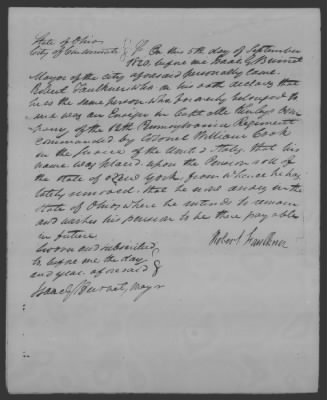 State of Ohio
City of Cincinnati } Ss On this 5th day of September
1820, before me Isaac G Burnet
Mayor of the city aforesaid personally came
Robert Faulkner who on his oath declares that
he is the same person who formerly belonged to
and was an Ensign in Capt
pany of the 12th Pennsylvania Regiment
commanded by Colonel William Cook
in the service of the United States, that his
name was placed upon the Pension roll of
the state of New York from whence he has
lately removed that he now resides in the
State of Ohio where he intends to remain
and wishes his pension to be there payable
in future
Sworn and subscribed
to before me the day
and year aforesaid
Robert Faulkner
Isaac G Burnet, Mayor